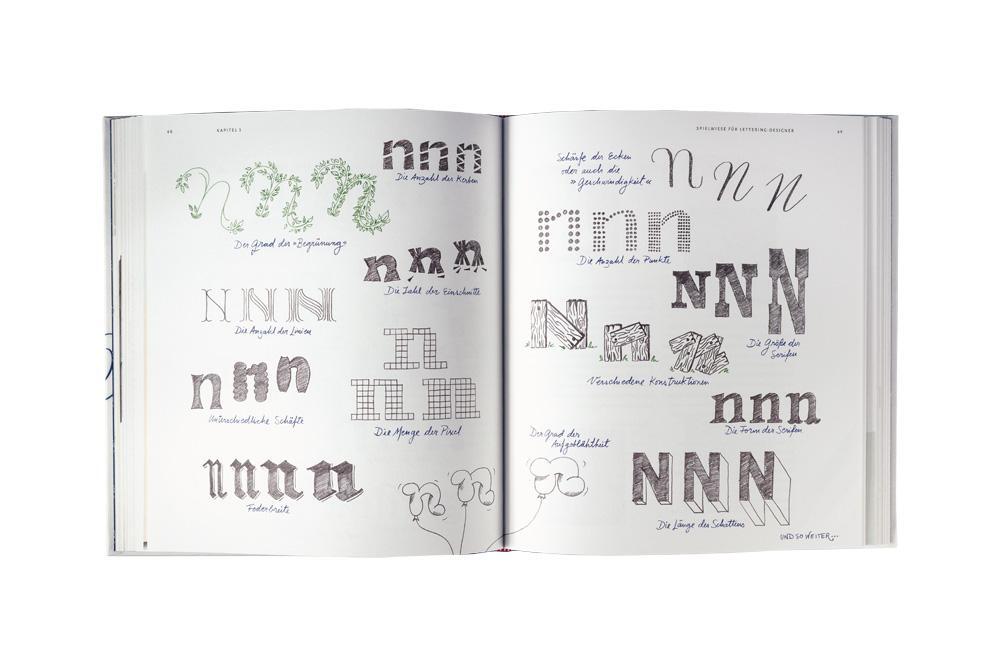 68 KAPITEL 3
nnn
Die Anzahl der Kerben
nnn
Der Grad der »Begrünung«
nnn
Die Zahl der Einschnitte
NNN
Die Anzahl der Linien
n
nn
Die Menge der Pixel
nnn
Unterschiedliche Schäfte
nnnn
Federbreite
nn
SPIELWIESE FÜR LETTERING-DESIGNER 69
Schärfe der Ecken
oder auch die
»Geschwindigkeit«
nnn
nnn
Die Anzahl der Punkte
NNN
Die Größe der
Serifen
Nnn
Verschiedene Konstruktionen
nnn
Die Form der Serifen
Der Grad der
Aufgeblähtheit
n
NNN
Die Länge des Schattens
UND SO WEITER...